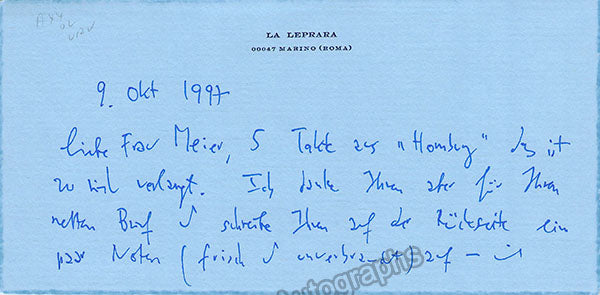 LA LEPRARA
00047 MARINO (ROMA)
9. Okt 1997
liebe Frau Meier, 5 Takte aus „Homburg" das ist
zu viel verlangt. Ich danke Ihnen aber für Ihren
netten Brief u schreibe Ihnen auf der Rückseite ein
paar Noten (frisch u unverbraucht) auf –
autographs